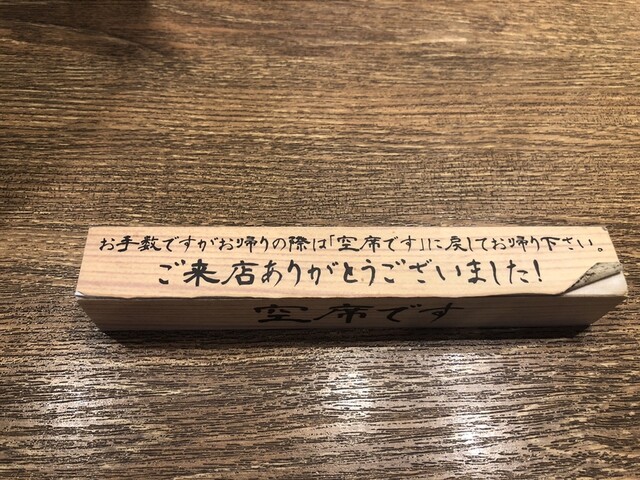 お手数ですがお帰りの際は「空席です」に戻してお帰り下さい。
ご来店ありがとうございました!
空席です